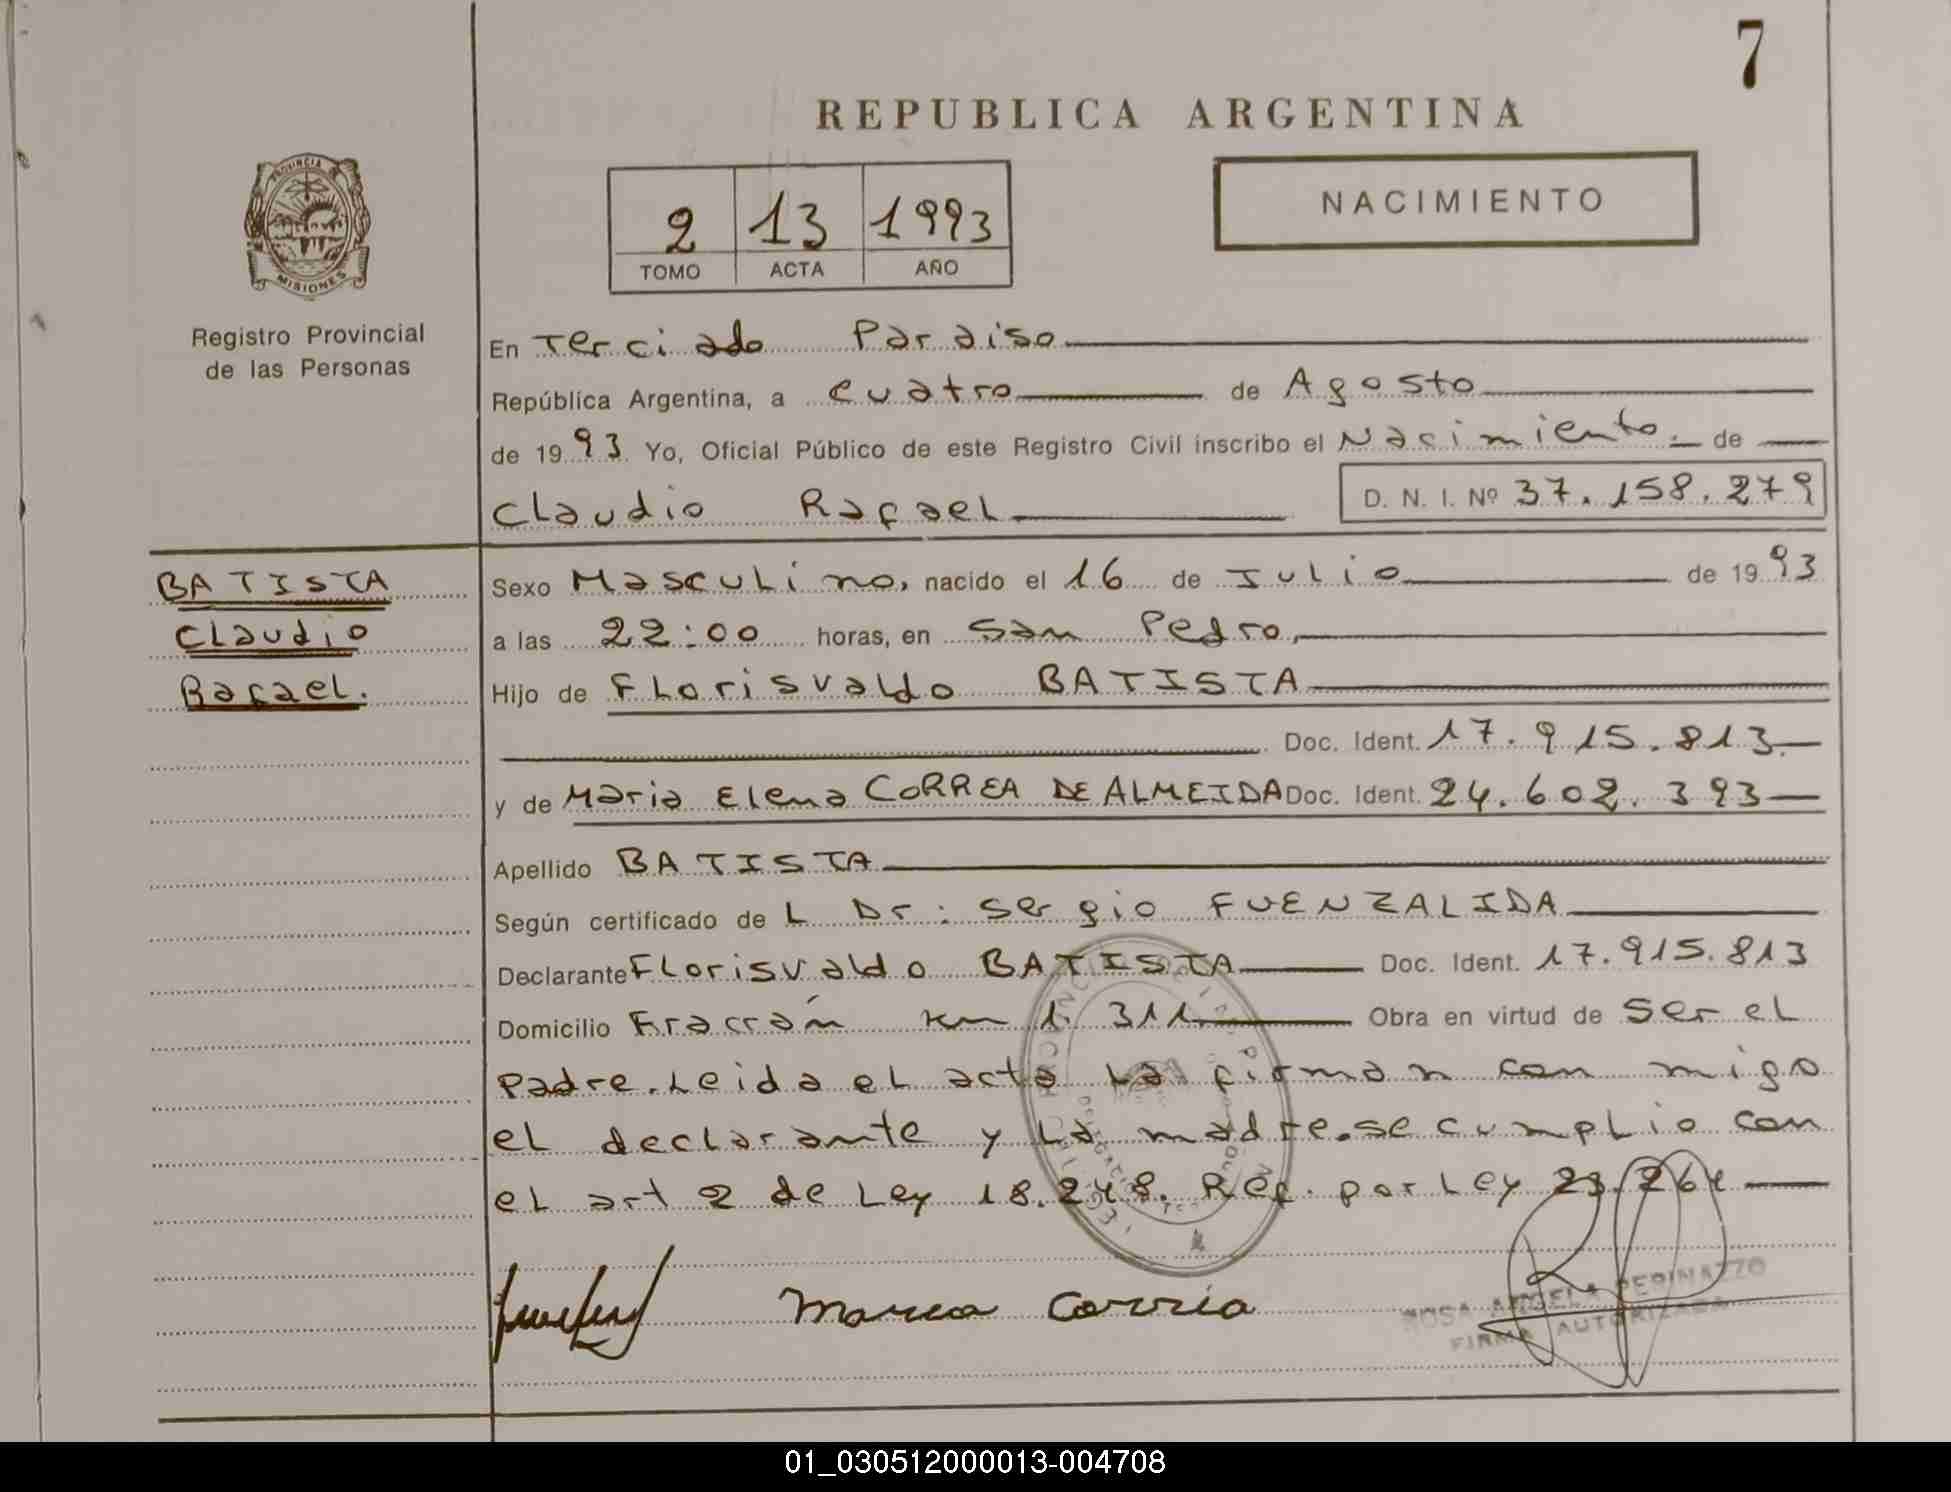 7
REPUBLICA ARGENTINA
PROVINCIA
MISIONES
Registro Provincial
de las Personas
2 13 1993
TOMO ACTA AÑO
NACIMIENTO
En Terciado Paraiso
República Argentina, a cuatro de Agosto
de 1993 Yo, Oficial Público de este Registro Civil inscribo el Nacimiento. de
Claudio Rafael D. N. I. Nº 37.158.279
BATISTA
Claudio
Rafael.
Sexo Masculino, nacido el 16 de Julio de 1993
a las 22:00 horas, en San Pedro,
Hijo de Florisvaldo BATISTA
Doc. Ident. 17.915.813
y de Maria Elena CORREA DE ALMEIDA Doc. Ident. 24.602.393
Apellido BATISTA
Según certificado de L Dr: Sergio FUENZALIDA
Declarante Florisvaldo BATISTA Doc. Ident. 17.915.813
Domicilio Fracrán Km 1. 311 Obra en virtud de ser el
padre. Leida el acta la firman con migo
el declarante y la madre. se cumplio con
el art 2 de Ley 18.248. Ref. por Ley 23.264
Maria Corria
ROSA ANGELA PERINAZZO
FIRMA AUTORIZADA
01_030512000013-004708